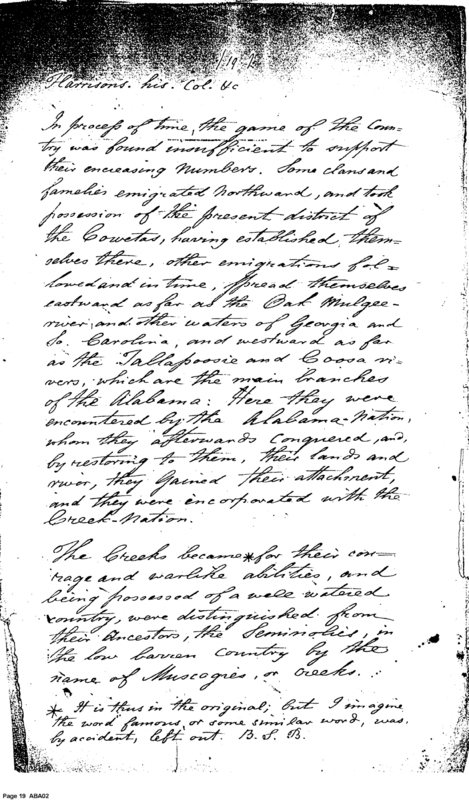 19
Harrisons. his. Col. &c
In process of time, the game of the Coun=
try was found insufficient to support
their encreasing Numbers. Some clans and
families emigrated Northward, and took
possession of the present district of
the Cowetas, having established them=
selves there, other emigrations fol=
lowed and in time, spread themselves
eastward as far as the Oak Mulgee-
river, and other waters of Georgia and
So. Carolina, and westward as far
as the Tallapoosie and Coosa ri=
vers, which are the main branches
of the Alabama: Here they were
encountered by the Alabama-Nation,
whom they afterwards conquered, and,
by restoring to them, their lands and
rivor, they gained their attachment,
and they were incorporated with the
Creek-Nation.
The Creeks became * for their cou=
rage and warlike abilities, and
being possessed of a well watered
country, were distinguished from
their Ancestors, the Seminolies, in
the low barren Country by the
name of Muscogies, or Creeks.
* It is thus in the original; but I imagine
the word famous, or some similar word, was,
by accident, left out. B. S. B.
Page 19 ABA02